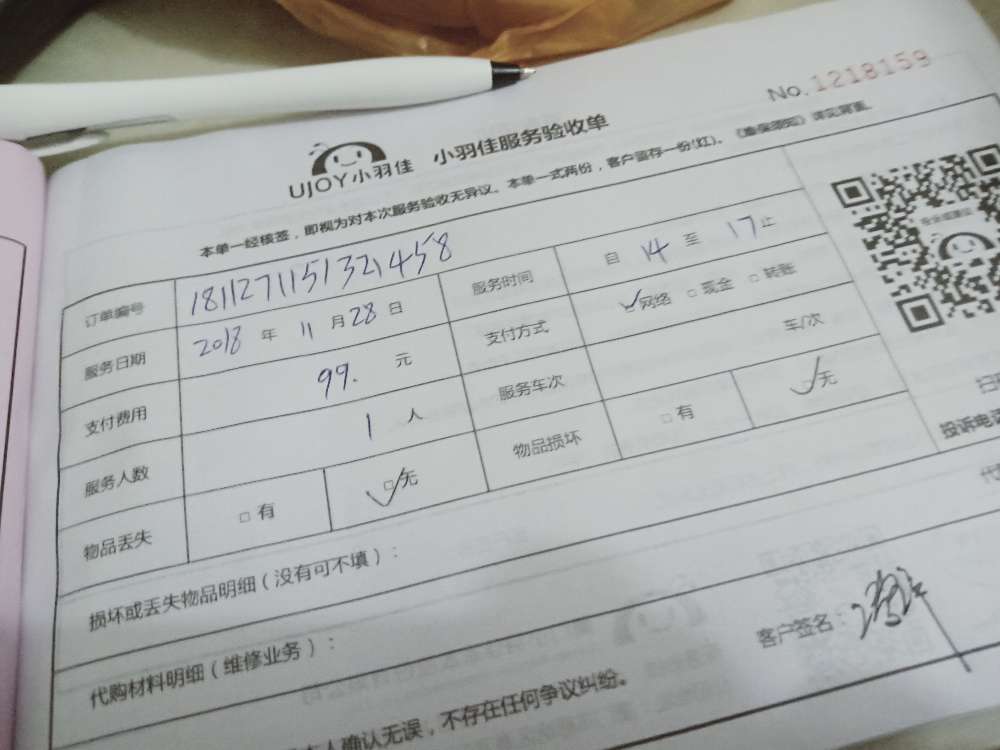 No.1218159
UJOY小羽佳 小羽佳服务验收单
本单一经核签，即视为对本次服务验收无异议。本单一式两份，客户留存一份(红)。
订单编号 1811271151321458 服务时间 自 14 至 17 止
服务日期 2018 年 11 月 28 日 支付方式 ☑网络 □现金 □转账
支付费用 99. 元 服务车次 车/次
服务人数 1 人 物品损坏 □有 ☑无
物品丢失 □有 ☑无
投诉电
损坏或丢失物品明细（没有可不填）：
代购材料明细（维修业务）：
客户签名：
人确认无误，不存在任何争议纠纷。